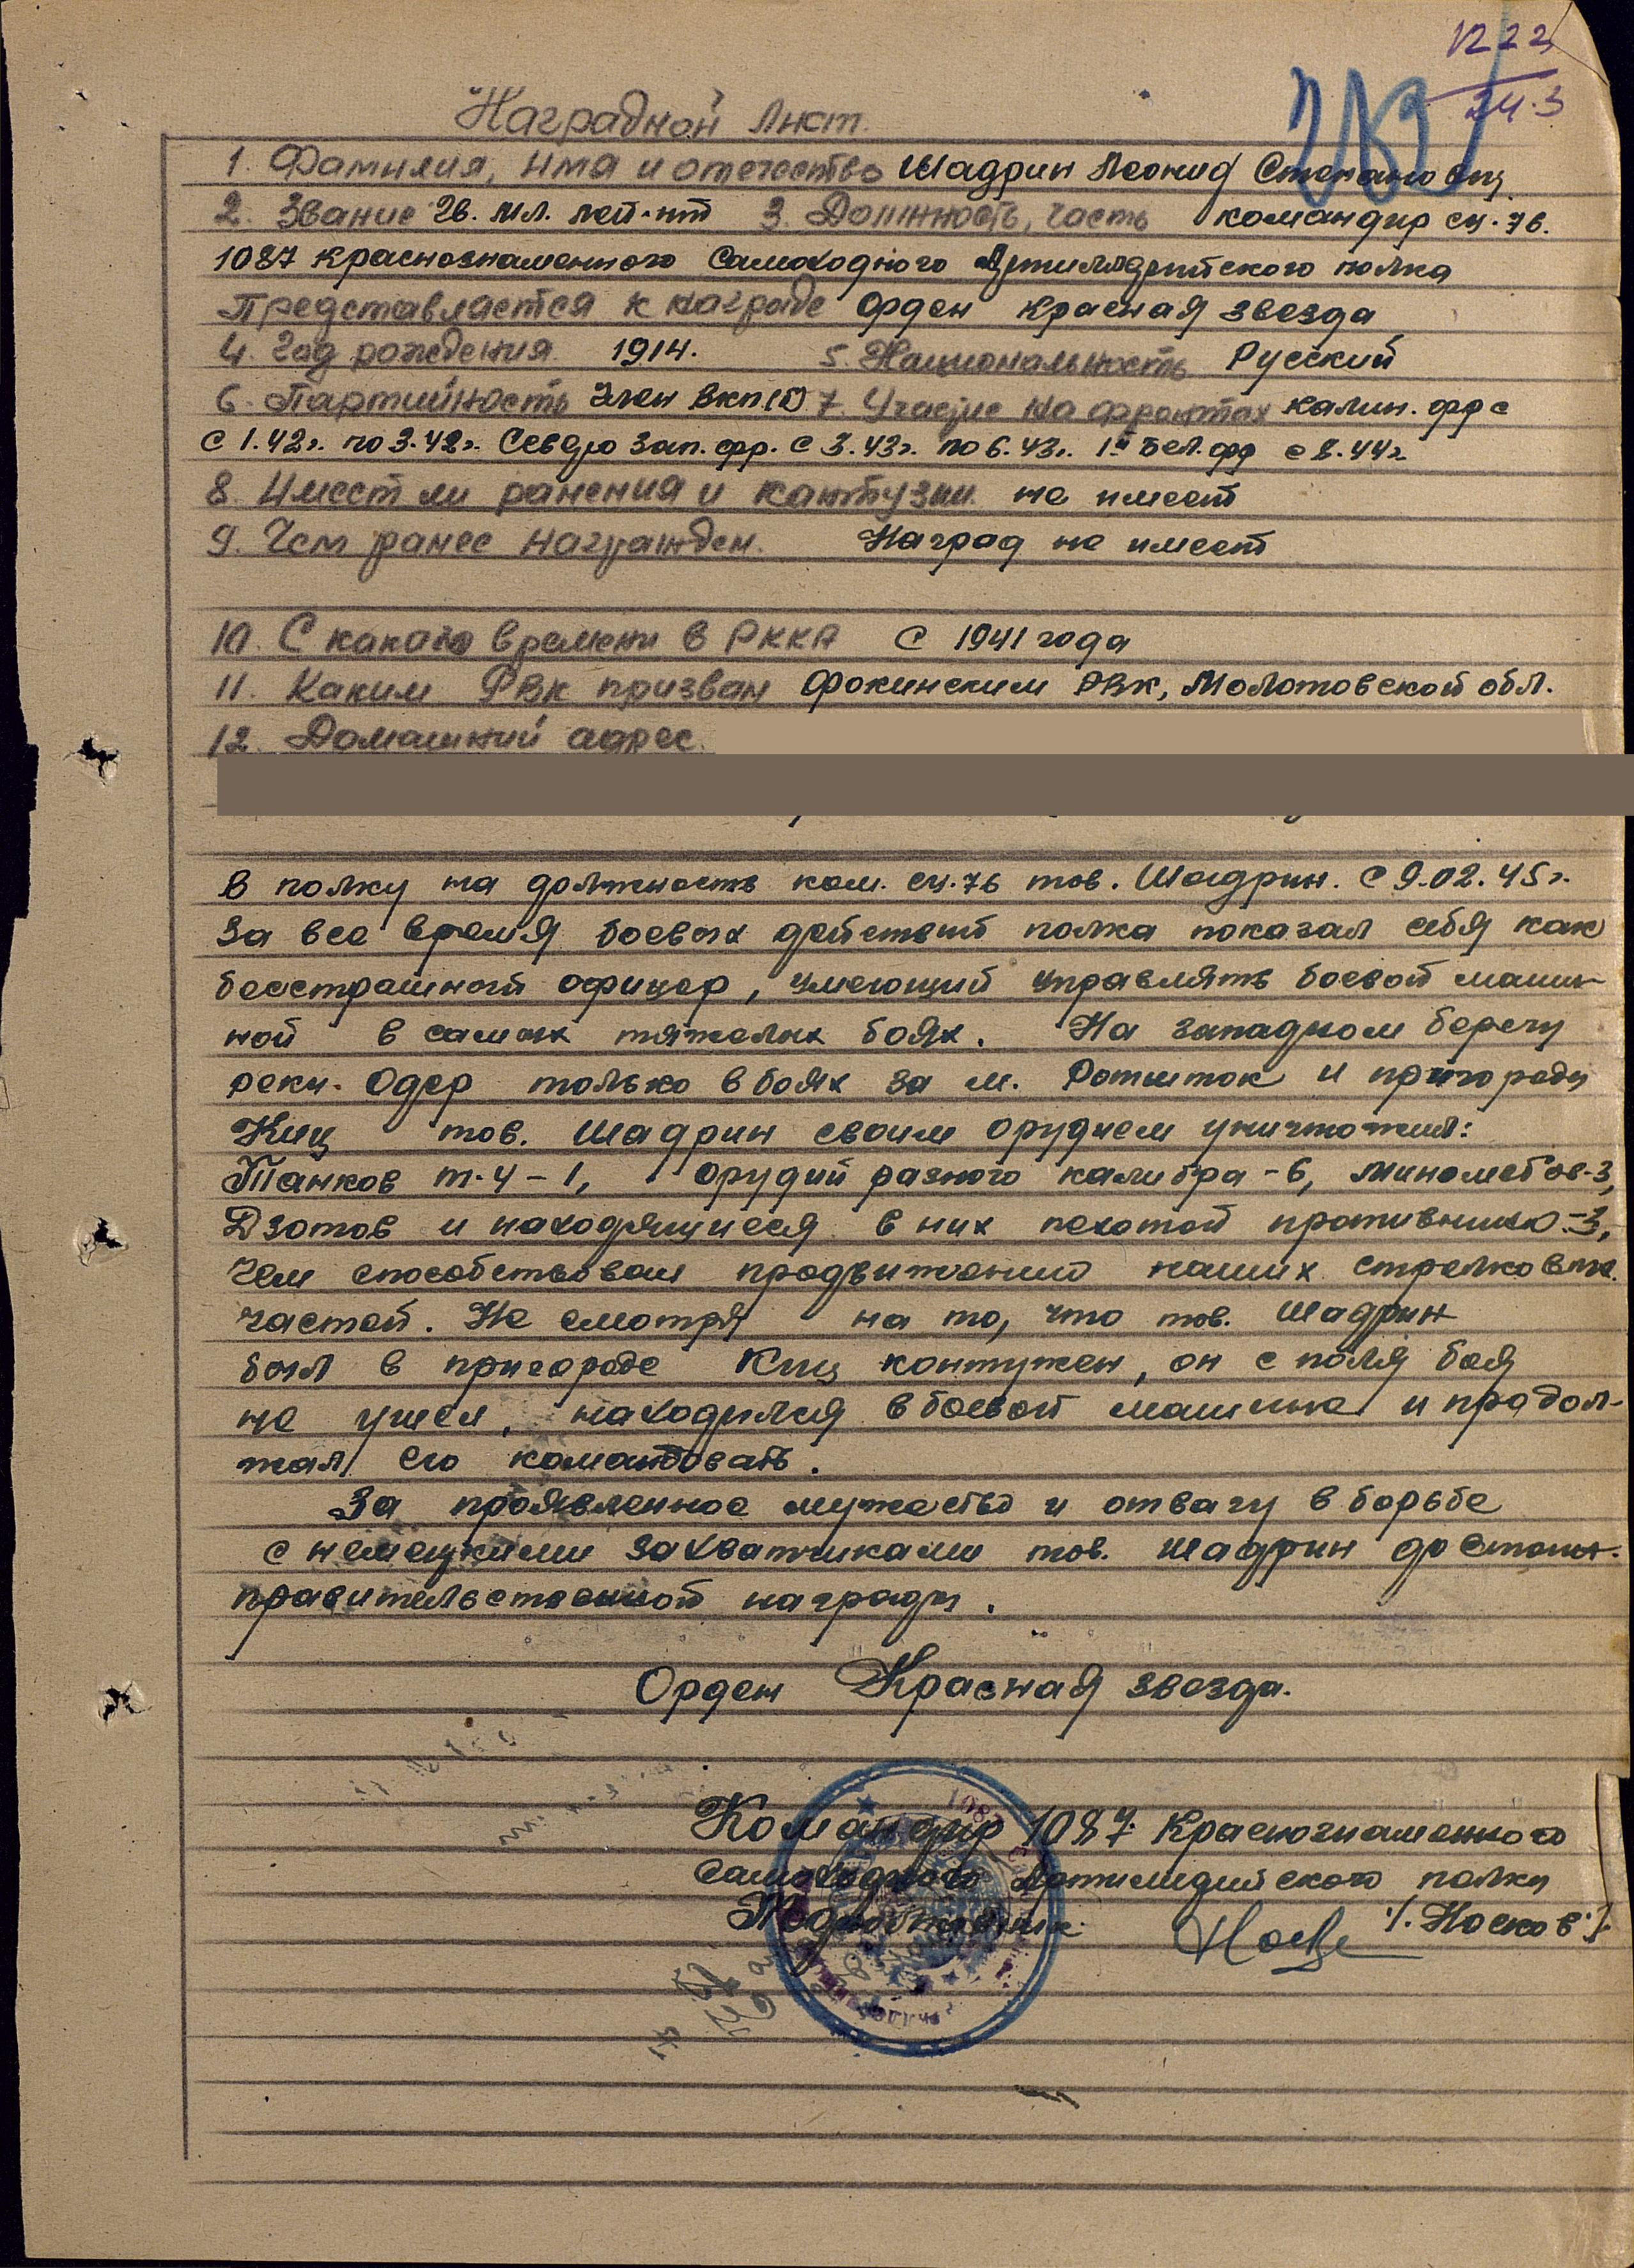 1222
24.3
Наградной лист.
1. Фамилия, имя и отечество Шадрин Леонид Степанович
2. Звание Гв. мл. лей-нт 3. Должность, часть командир су-76.
1087 краснознаменного Самоходного Артиллерийского полка
Представляется к награде орден красная звезда
4. Год рождения 1914. 5. Национальность Русский
6. Партийность Член ВКП(б) 7. Участие на фронтах калин. фр с
с 1.42г. по 3.42г. Северо Зап. фр. с 3.43г. по 6.43г. 1й Бел. фр с 8.44г
8. Имеет ли ранения и кантузии не имеет
9. Чем ранее награжден. Наград не имеет
10. С какого времени в РККА с 1941 года
11. Каким РВК призван Фокинским РВК, Молотовской обл.
12. Домашний адрес.
В полку на должность ком. су-76 тов. Шадрин. с 9.02.45г.
За все время боевых действий полка показал себя как
бесстрашный офицер, умеющий управлять боевой маши-
ной в самых тяжелых боях. На западном берегу
реки. Одер только в боях за м. Ротшток и пригороды
Киц тов. Шадрин своим орудием уничтожил:
Танков т-4 - 1, орудий разного калибра - 6, минометов-3,
Дзотов и находящиеся в них пехотой противника-3,
чем способствовал продвижению наших стрелковых
частей. Не смотря на то, что тов. Шадрин
был в пригороде Киц контужен, он с поля боя
не ушел, находился в боевой машине и продол-
жал ею командовать.
За проявленное мужество и отвагу в борьбе
с немецкими захватчиками тов. Шадрин достоин.
правительственной награды.
Орден Красная звезда.
Командир 1087 Краснознаменного
Самоходного Артиллерийского полка
Подполковник /. Носков ./